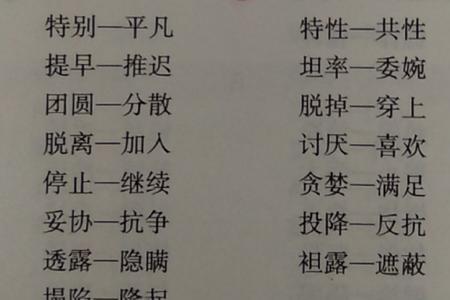 特别—平凡
提早—推迟
团圆—分散
脱离—加入
停止—继续
妥协—抗争
透露—隐瞒
塌陷—隆起
特性—共性
坦率—委婉
脱掉—穿上
讨厌—喜欢
贪婪—满足
投降—反抗
袒露—遮蔽